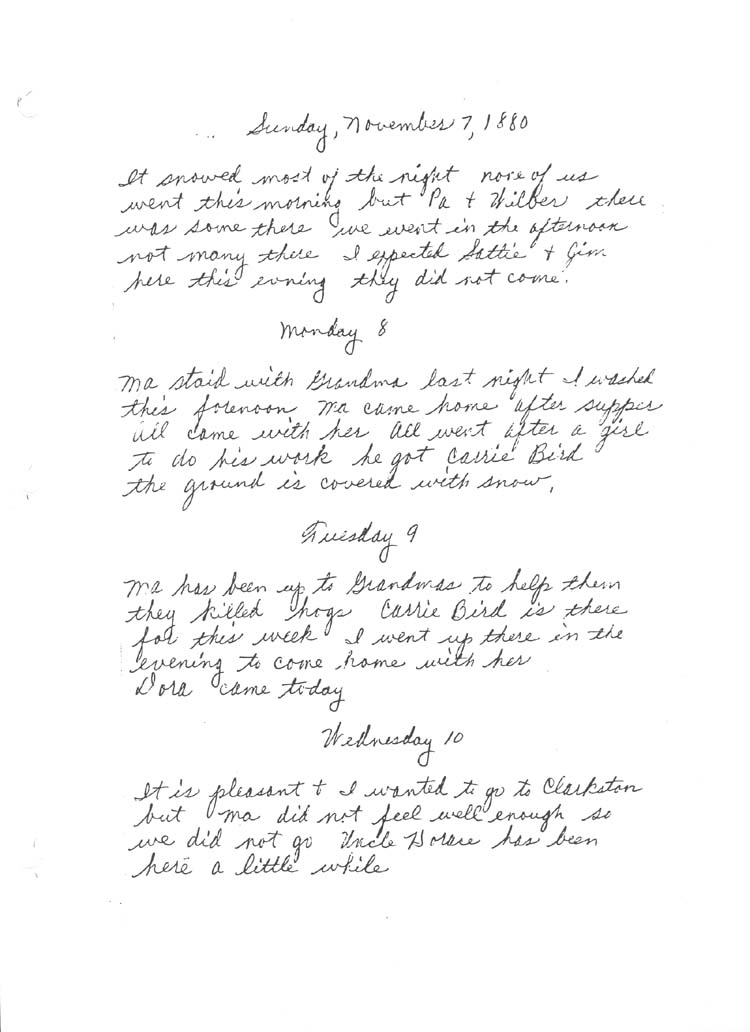 Sunday, November 7, 1880
It snowed most of the night none of us
went this morning but Pa + Wilber there
was some there we went in the afternoon
not many there I expected Hattie + Jim
here this evning they did not come.
Monday 8
Ma staid with Grandma last night I washed
this forenoon Ma came home after supper
came with her All went after a girl
to do his work he got Carrie Bird
the ground is covered with snow,
Tuesday 9
Ma has been up to Grandmas to help them
they killed hogs Carrie Bird is there
for this week I went up there in the
evening to come home with her
Dora came today
Wednesday 10
It is pleasant + I wanted to go to Clarkston
but Ma did not feel well enough so
we did not go Uncle Horace has been
here a little while